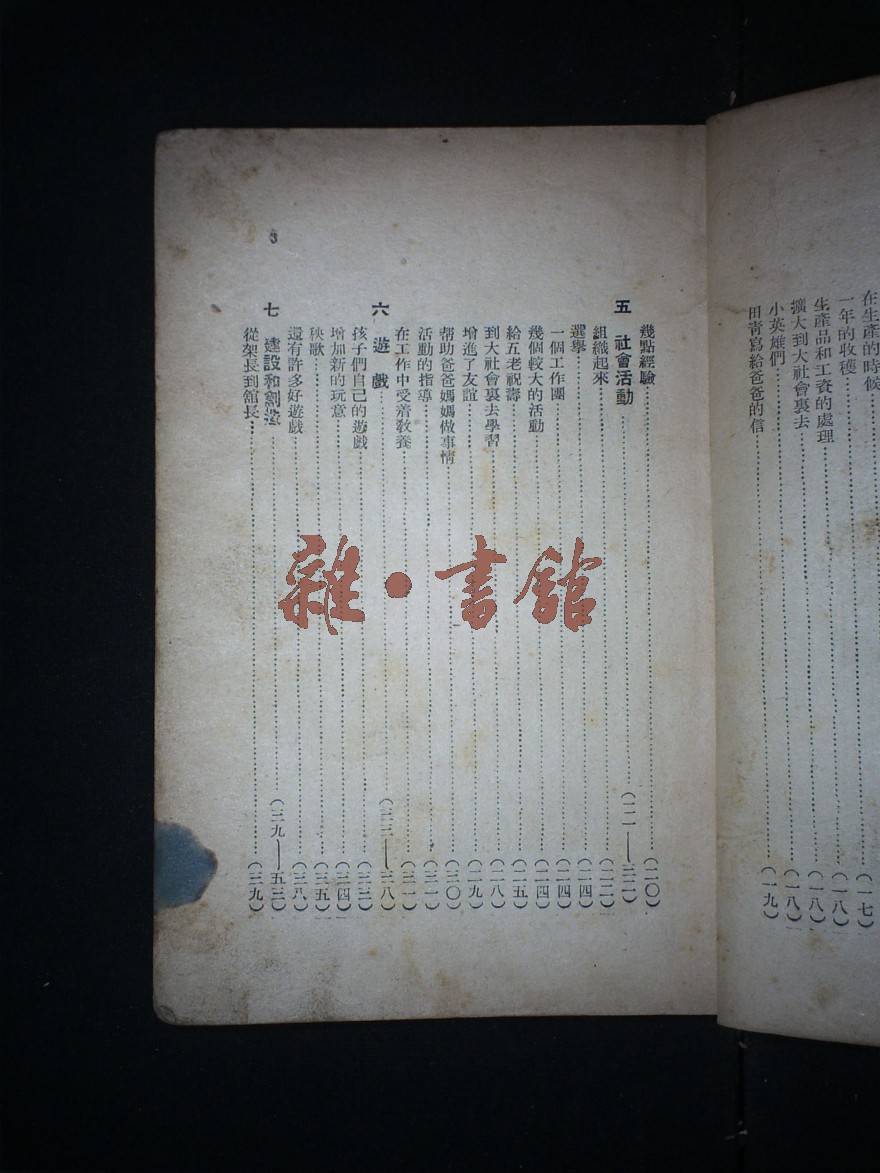 在生產的時候……(一七)
一年的收穫……(一八)
生產品和工資的處理……(一八)
擴大到大社會裏去……(一八)
小英雄們……(一九)
田靑寫給爸爸的信
幾點經驗……(二〇)
五 社會活動……(二一——三二)
組織起來……(二二)
選舉……(二四)
一個工作團……(二四)
幾個較大的活動……(二四)
給五老祝壽……(二五)
到大社會裏去學習……(二八)
增進了友誼……(二九)
帮助爸爸媽媽做事情……(三〇)
活動的指導……(三一)
在工作中受着敎養……(三二)
六 遊戲……(三三——三八)
孩子們自己的遊戲……(三三)
增加新的玩意……(三四)
秧歌……(三五)
還有許多好遊戲……(三八)
七 建設和創造……(三九——五三)
從架長到舘長……(三九)
3
雜·書館